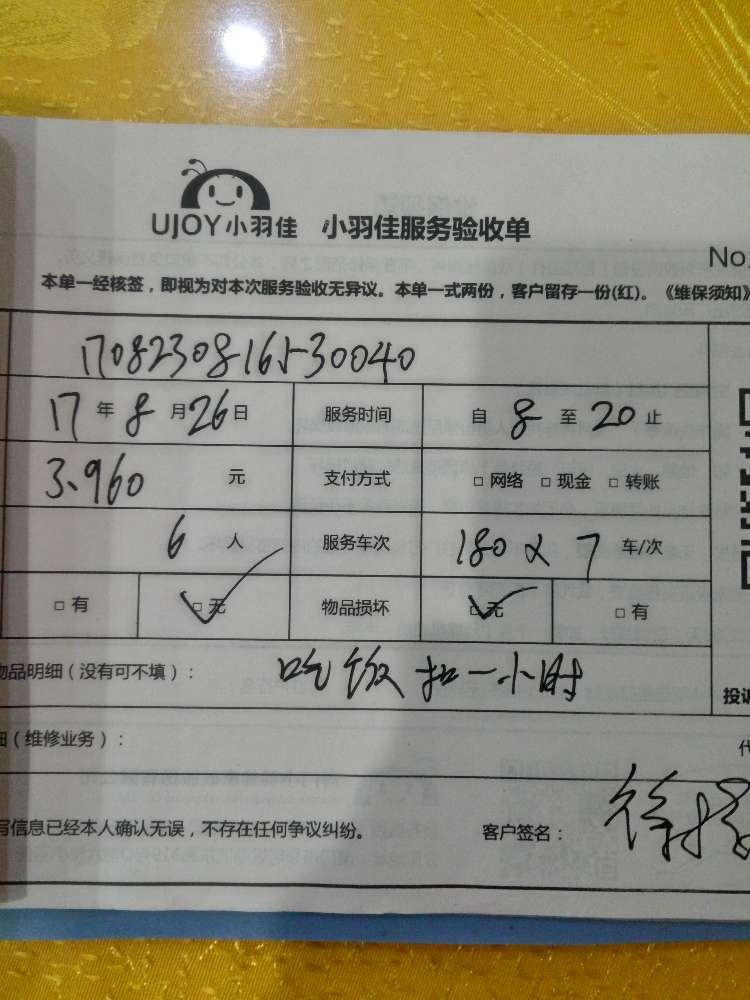 UJOY小羽佳 小羽佳服务验收单
No.
本单一经核签，即视为对本次服务验收无异议。本单一式两份，客户留存一份(红)。《维保须知》
1708230816530040
17年8月26日 服务时间 自8至20止
3.960元 支付方式 □网络 □现金 □转账
6人 服务车次 180×7车/次
□有 □无 物品损坏 □无 □有
物品明细（没有可不填）： 吃饭扣一小时
投诉
（维修业务）：
代
写信息已经本人确认无误，不存在任何争议纠纷。 客户签名： 徐